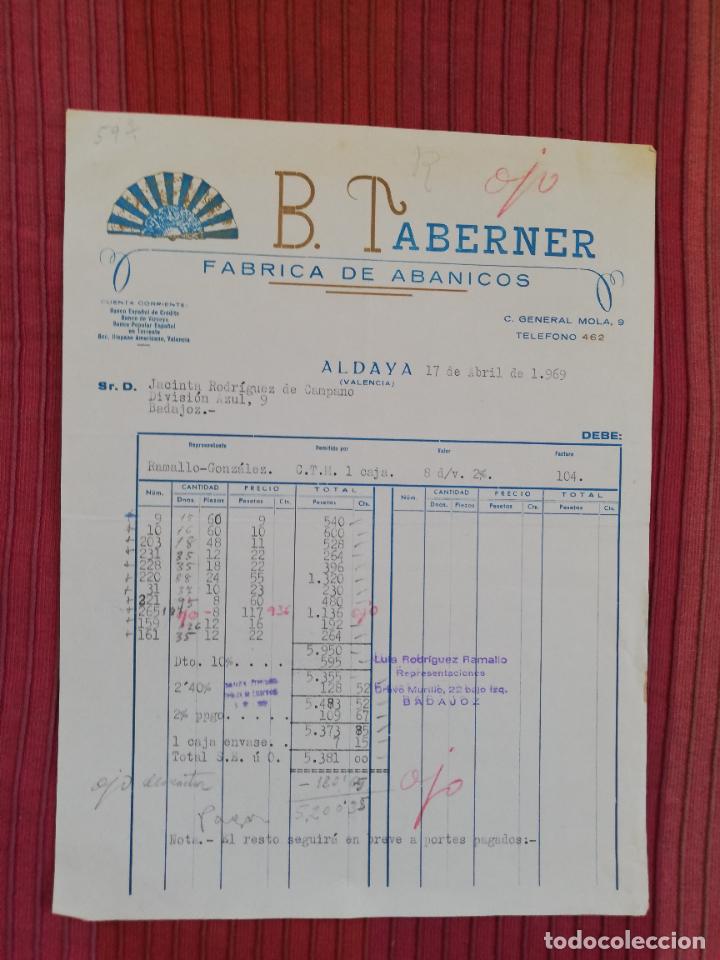 59
R ojo
B. TABERNER
FABRICA DE ABANICOS
CUENTA CORRIENTE:
Banco Español de Crédito
Banco de Vizcaya
Banco Popular Español
en Torrente
Bco. Hispano Americano, Valencia
C. GENERAL MOLA, 9
TELEFONO 462
ALDAYA 17 de Abril de 1.969
(VALENCIA)
Sr. D. Jacinta Rodríguez de Campano
División Azul, 9
Badajoz.-
DEBE:
Representante Remitido por Valor Factura
Ramallo-González. C.T.M. 1 caja. 8 d/v. 2%. 104.
Núm. CANTIDAD PRECIO TOTAL Núm. CANTIDAD PRECIO TOTAL
Dnas. Piezas Pesetas Cts. Pesetas Cts. Docs. Piezas Pesetas Cts. Pesetas Cts.
9 15 60 9 540 -
10 16 60 10 600 -
203 18 48 11 528 -
231 35 12 22 264 -
228 35 18 22 396 -
220 88 24 55 1.320 -
31 37 10 23 230 -
221 95 8 60 480 -
265 187 ojo -8 117 936 1.136 ojo
159 26 12 16 192 -
161 35 12 22 264 -
5.950 -
Dto. 10%. . . . . 595 -
5.355 -
2'40% 128 52
5.483 52
2% ppgo. . . . . . 109 67
5.373 85
1 caja envase. . . 7 15
Total S.E. ú O. 5.381 00
Luis Rodríguez Ramallo
Representaciones
Bravo Murillo, 22 bajo izq.
BADAJOZ
ojo descontar
ojo
5.200'35
Nota.- El resto seguirá en breve a portes pagados:-
todocoleccion.net